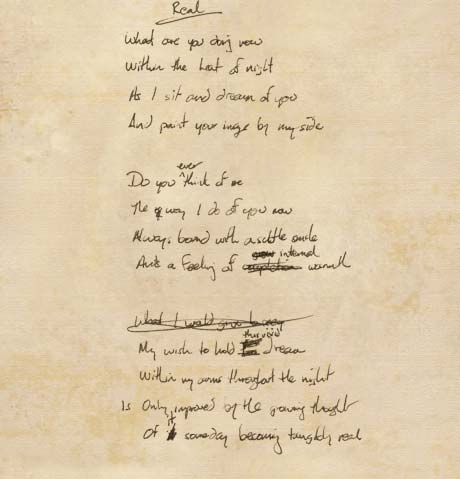 Real
What are you doing now
Within the heat of night
As I sit and dream of you
And paint your image by my side
Do you ever think of me
The way I do of you now
Always bound with a subtle smile
And a feeling of internal warmth
What I would give to
My wish to hold this vivid dream
Within my arms throughout the night
Is Only improved by the growing thought
Of it someday becoming tangibly real